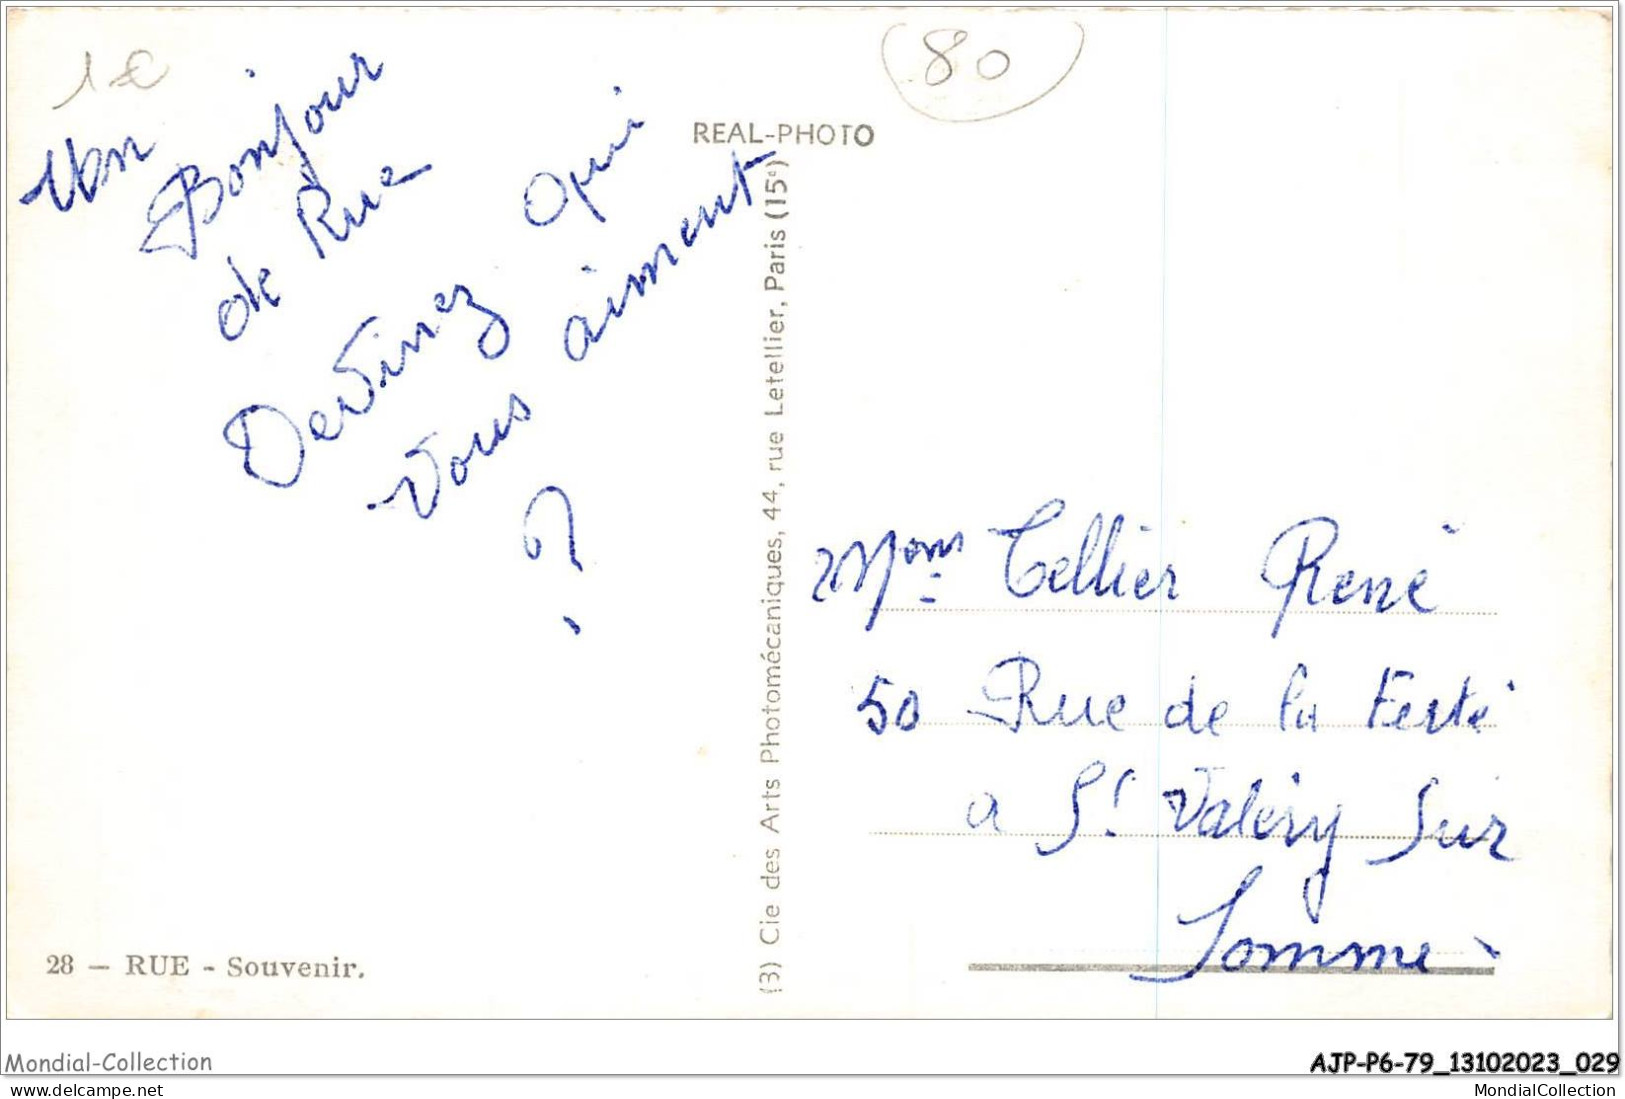 1€
80
Un
Bonjour
de Rue
Devinez qui
vous aiment
?
REAL-PHOTO
(3) Cie des Arts Photomécaniques, 44, rue Letellier, Paris (15e)
Mons Tellier René
50 Rue de la Ferté
a St Valéry Sur
Somme
28 — RUE - Souvenir.
Mondial-Collection
AJP-P6-79_13102023_029
posted for sale on delcampe.net
MondialCollection